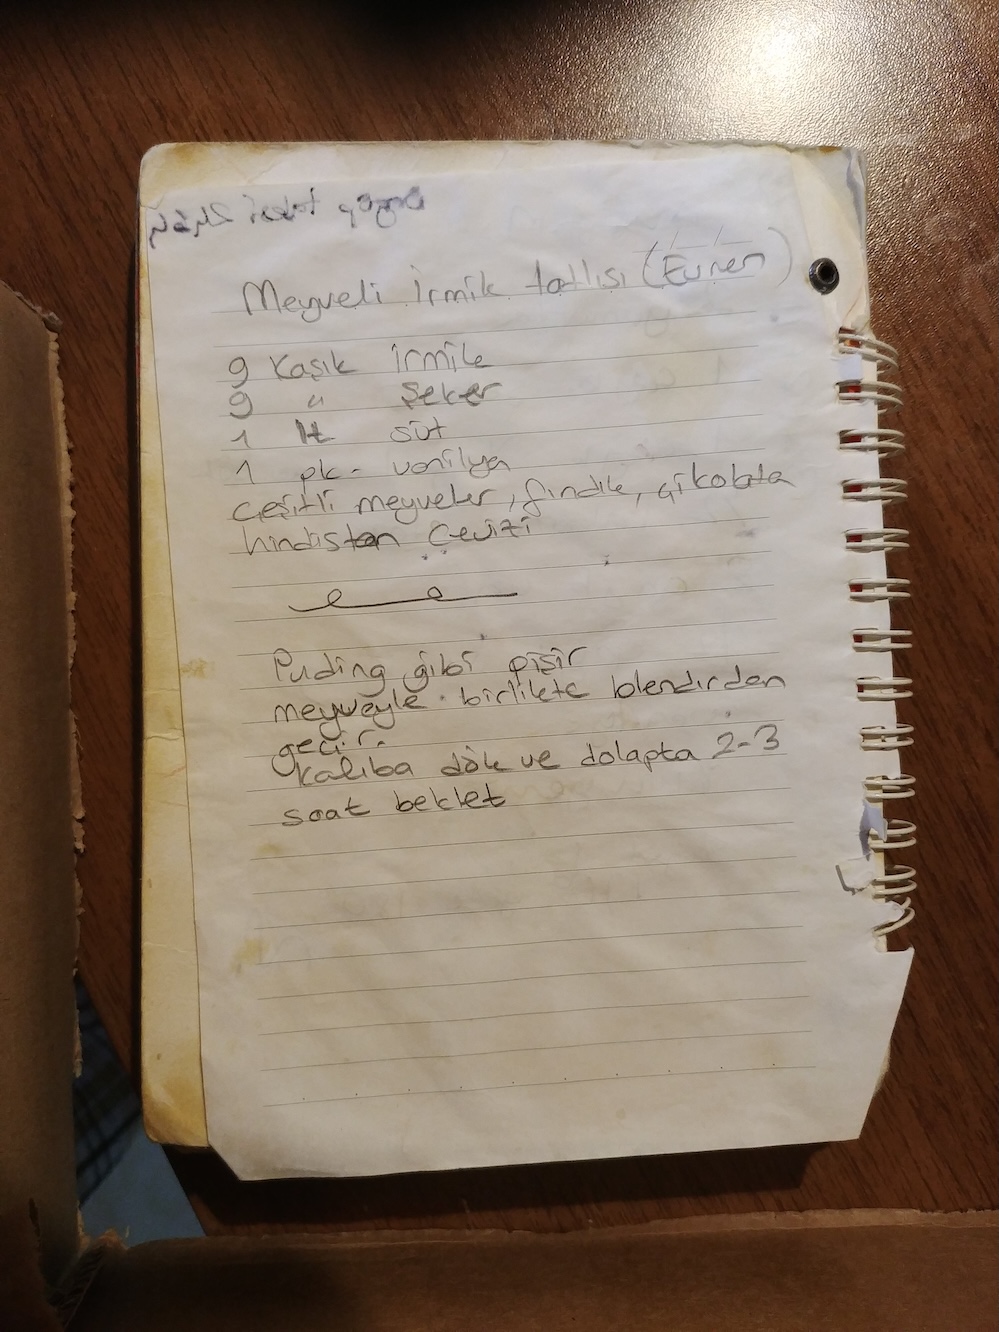 Meyveli irmik tatlısı (Evren)
9 Kaşık irmik
9 " Şeker
1 lt süt
1 pk. vanilya
çeşitli meyveler, fındık, çikolata
hindistan cevizi
Puding gibi pişir
meyveyle birlikte blendırdan
geçir.
kalıba dök ve dolapta 2-3
saat beklet